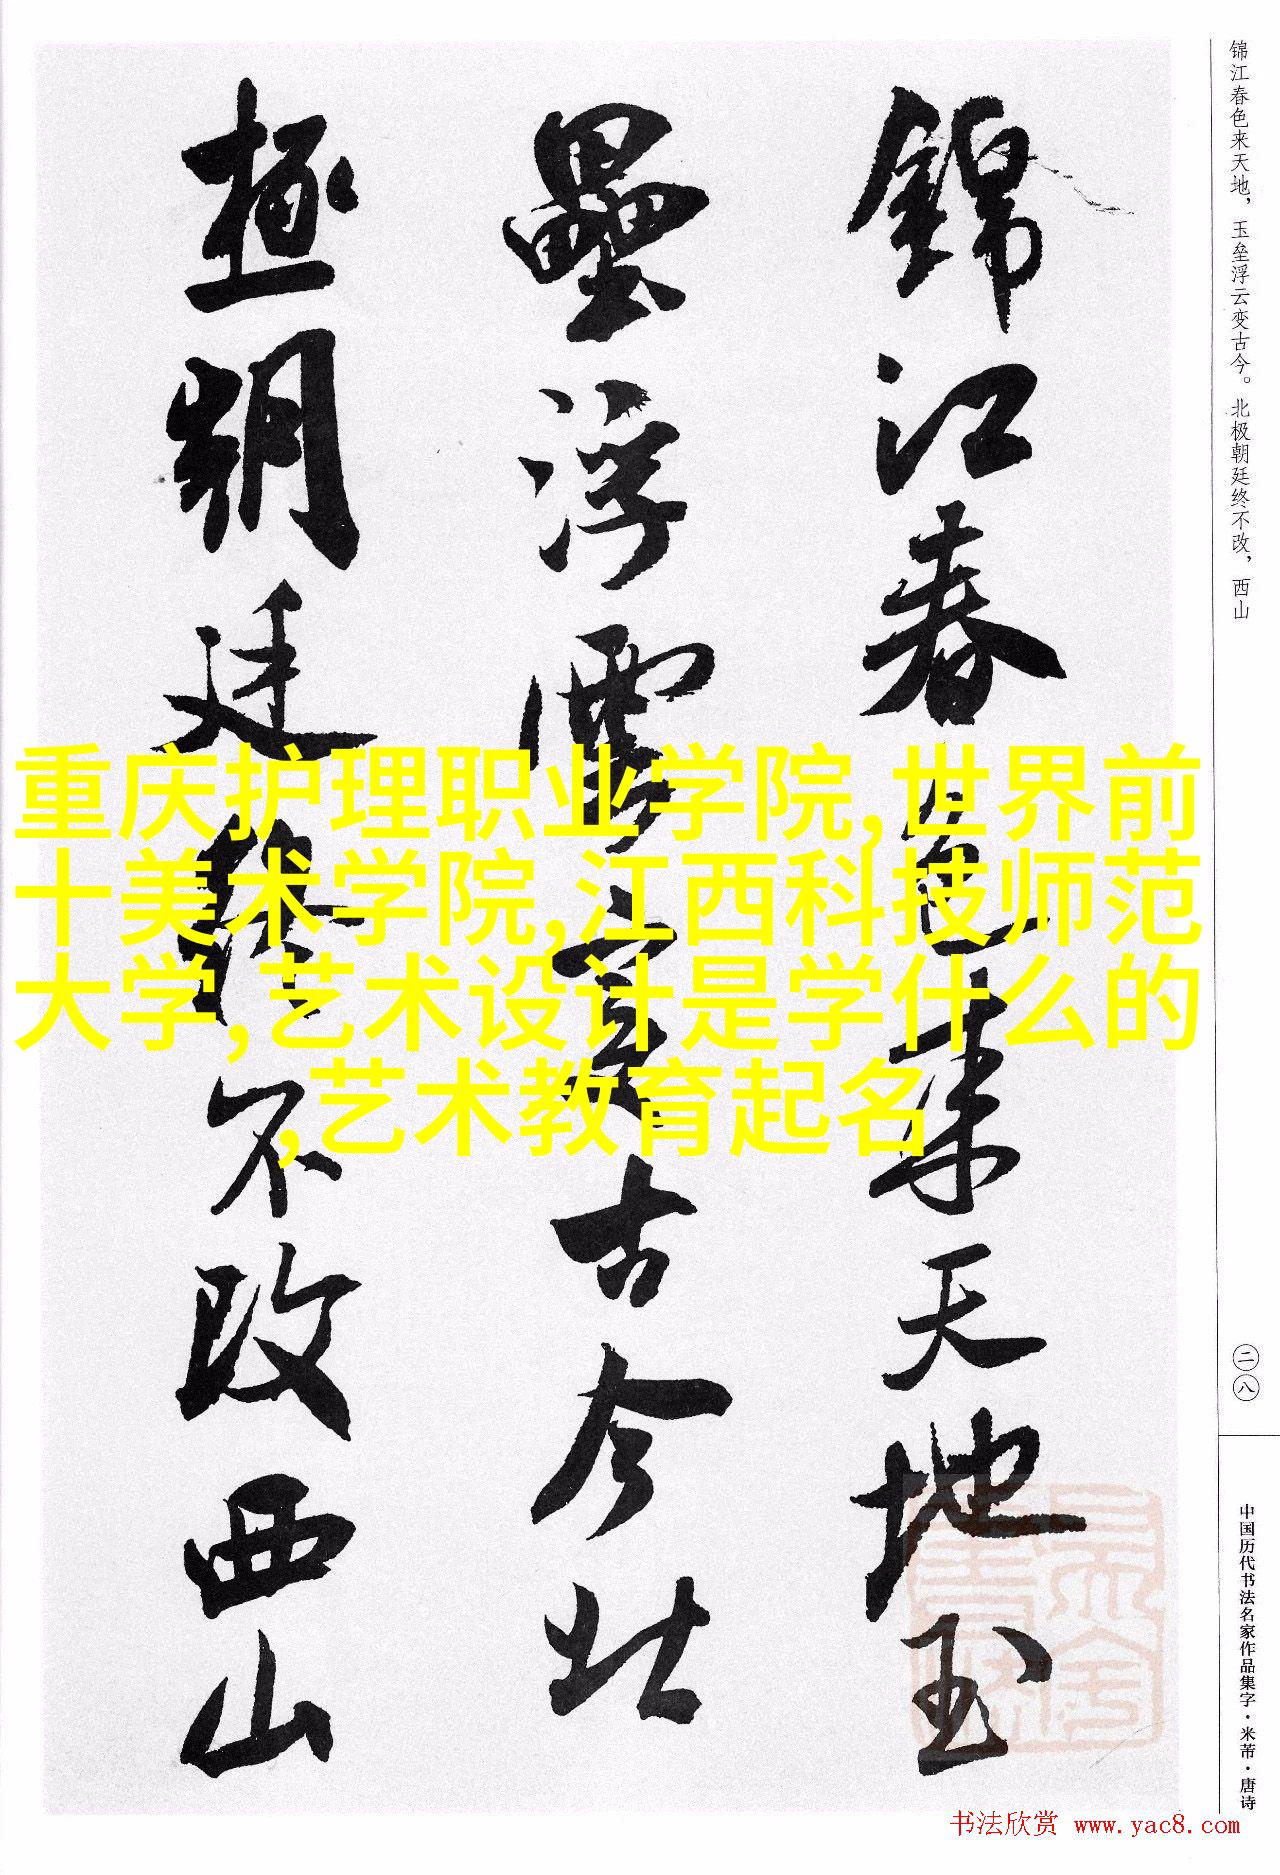 锦江春色来天地，玉垒浮云变古今。北极朝廷终不改，西山
錦江春色来天地玉
壘浮雲變古今北
極朝廷終不改西山
重庆护理职业学院,世界前
十美术学院,江西科技师范
大学,艺术设计是学什么的
,艺术教育起名
二八
中国历代书法名家作品集字·米芾·唐诗
书法欣赏 www.yac8.com